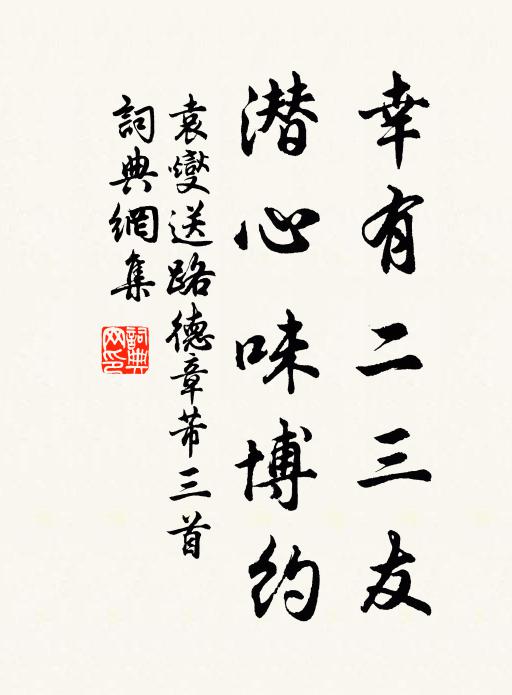 幸有二三友
潜心味博约
袁燮送路德章芾三首
詞典網集
詞典网印